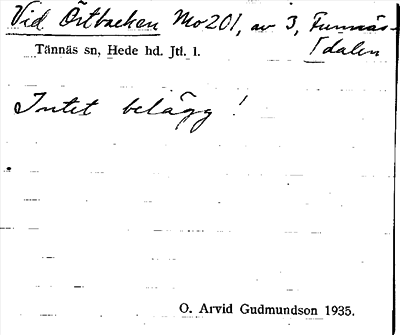 Vid Örtbacken Mo 201, av 3, Funnäs-
dalen
Tännäs sn, Hede hd. Jtl. l.
Intet belägg!
O. Arvid Gudmundson 1935.